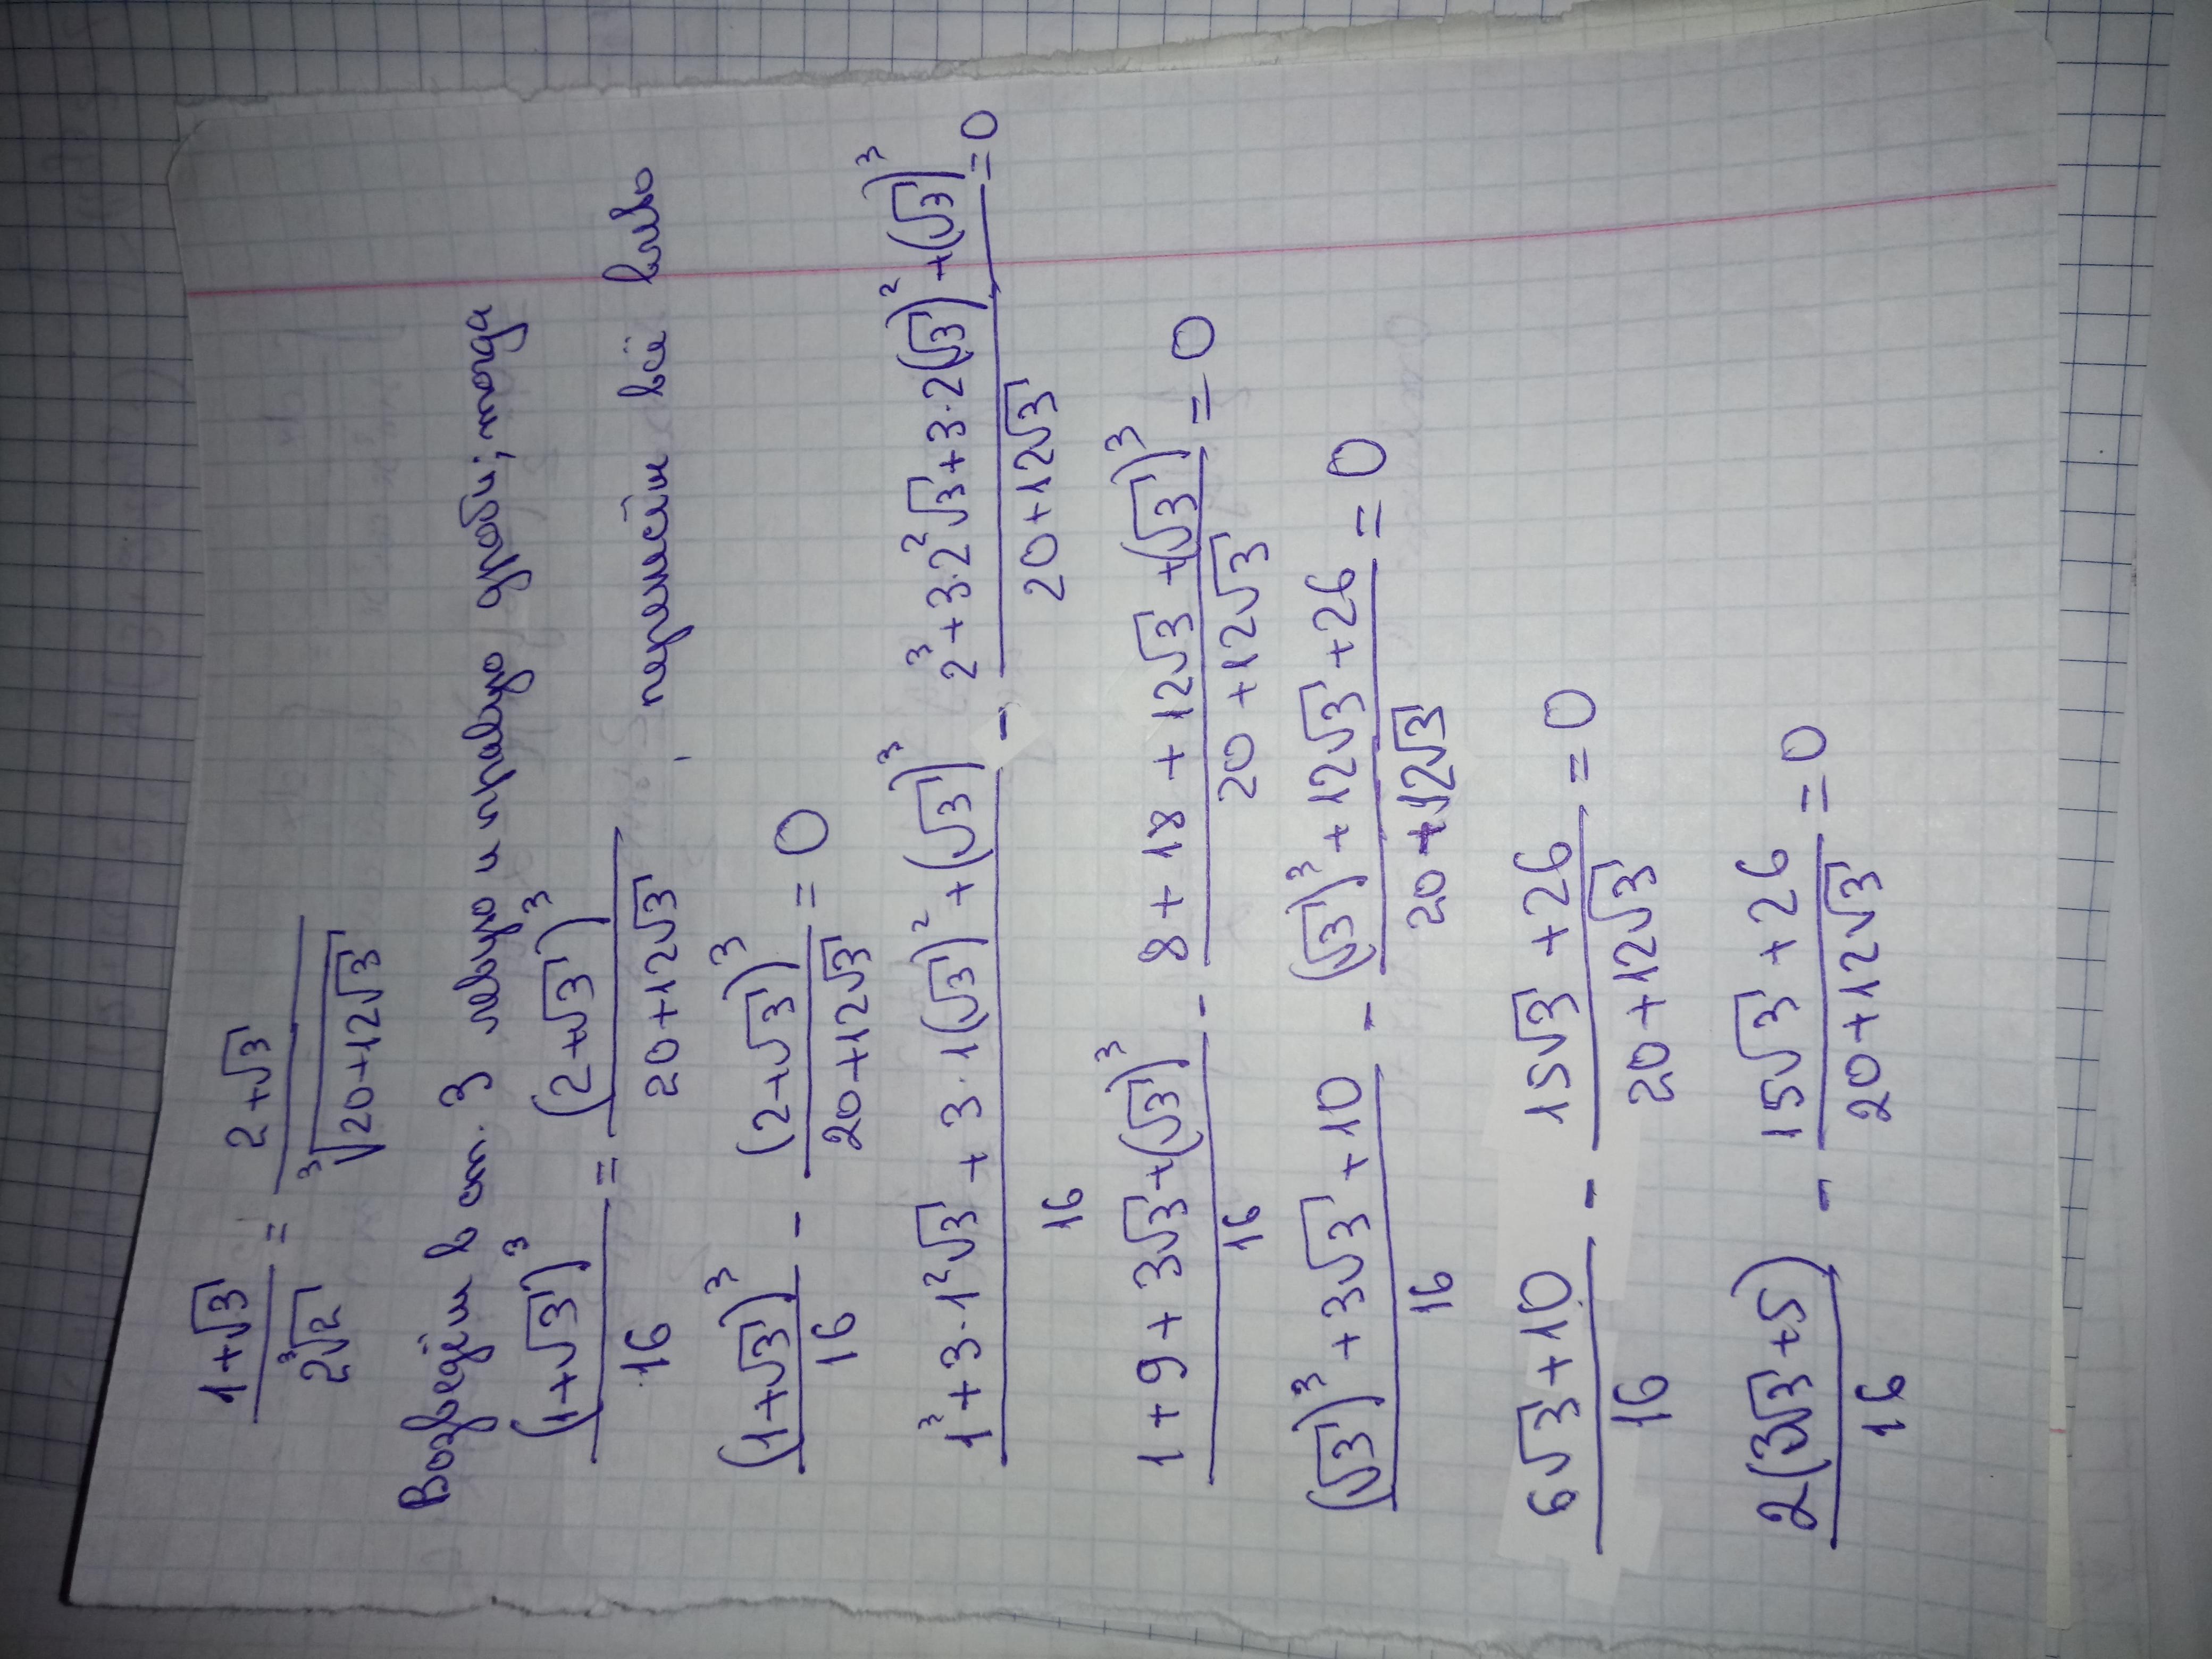 (1+√3)/(2∛2) = (2+√3)/∛(20+12√3)
Возведём в ст. 3 левую и правую дроби; тогда
(1+√3)³/16 = (2+√3)³/(20+12√3), перенесём всё влево
(1+√3)³/16 - (2+√3)³/(20+12√3) = 0
(1³+3·1²√3+3·1(√3)²+(√3)³)/16 - (2³+3·2²√3+3·2(√3)²+(√3)³)/(20+12√3) = 0
(1+9+3√3+(√3)³)/16 - (8+18+12√3+(√3)³)/(20+12√3) = 0
((√3)³+3√3+10)/16 - ((√3)³+12√3+26)/(20+12√3) = 0
(6√3+10)/16 - (15√3+26)/(20+12√3) = 0
2(3√3+5)/16 - (15√3+26)/(20+12√3) = 0